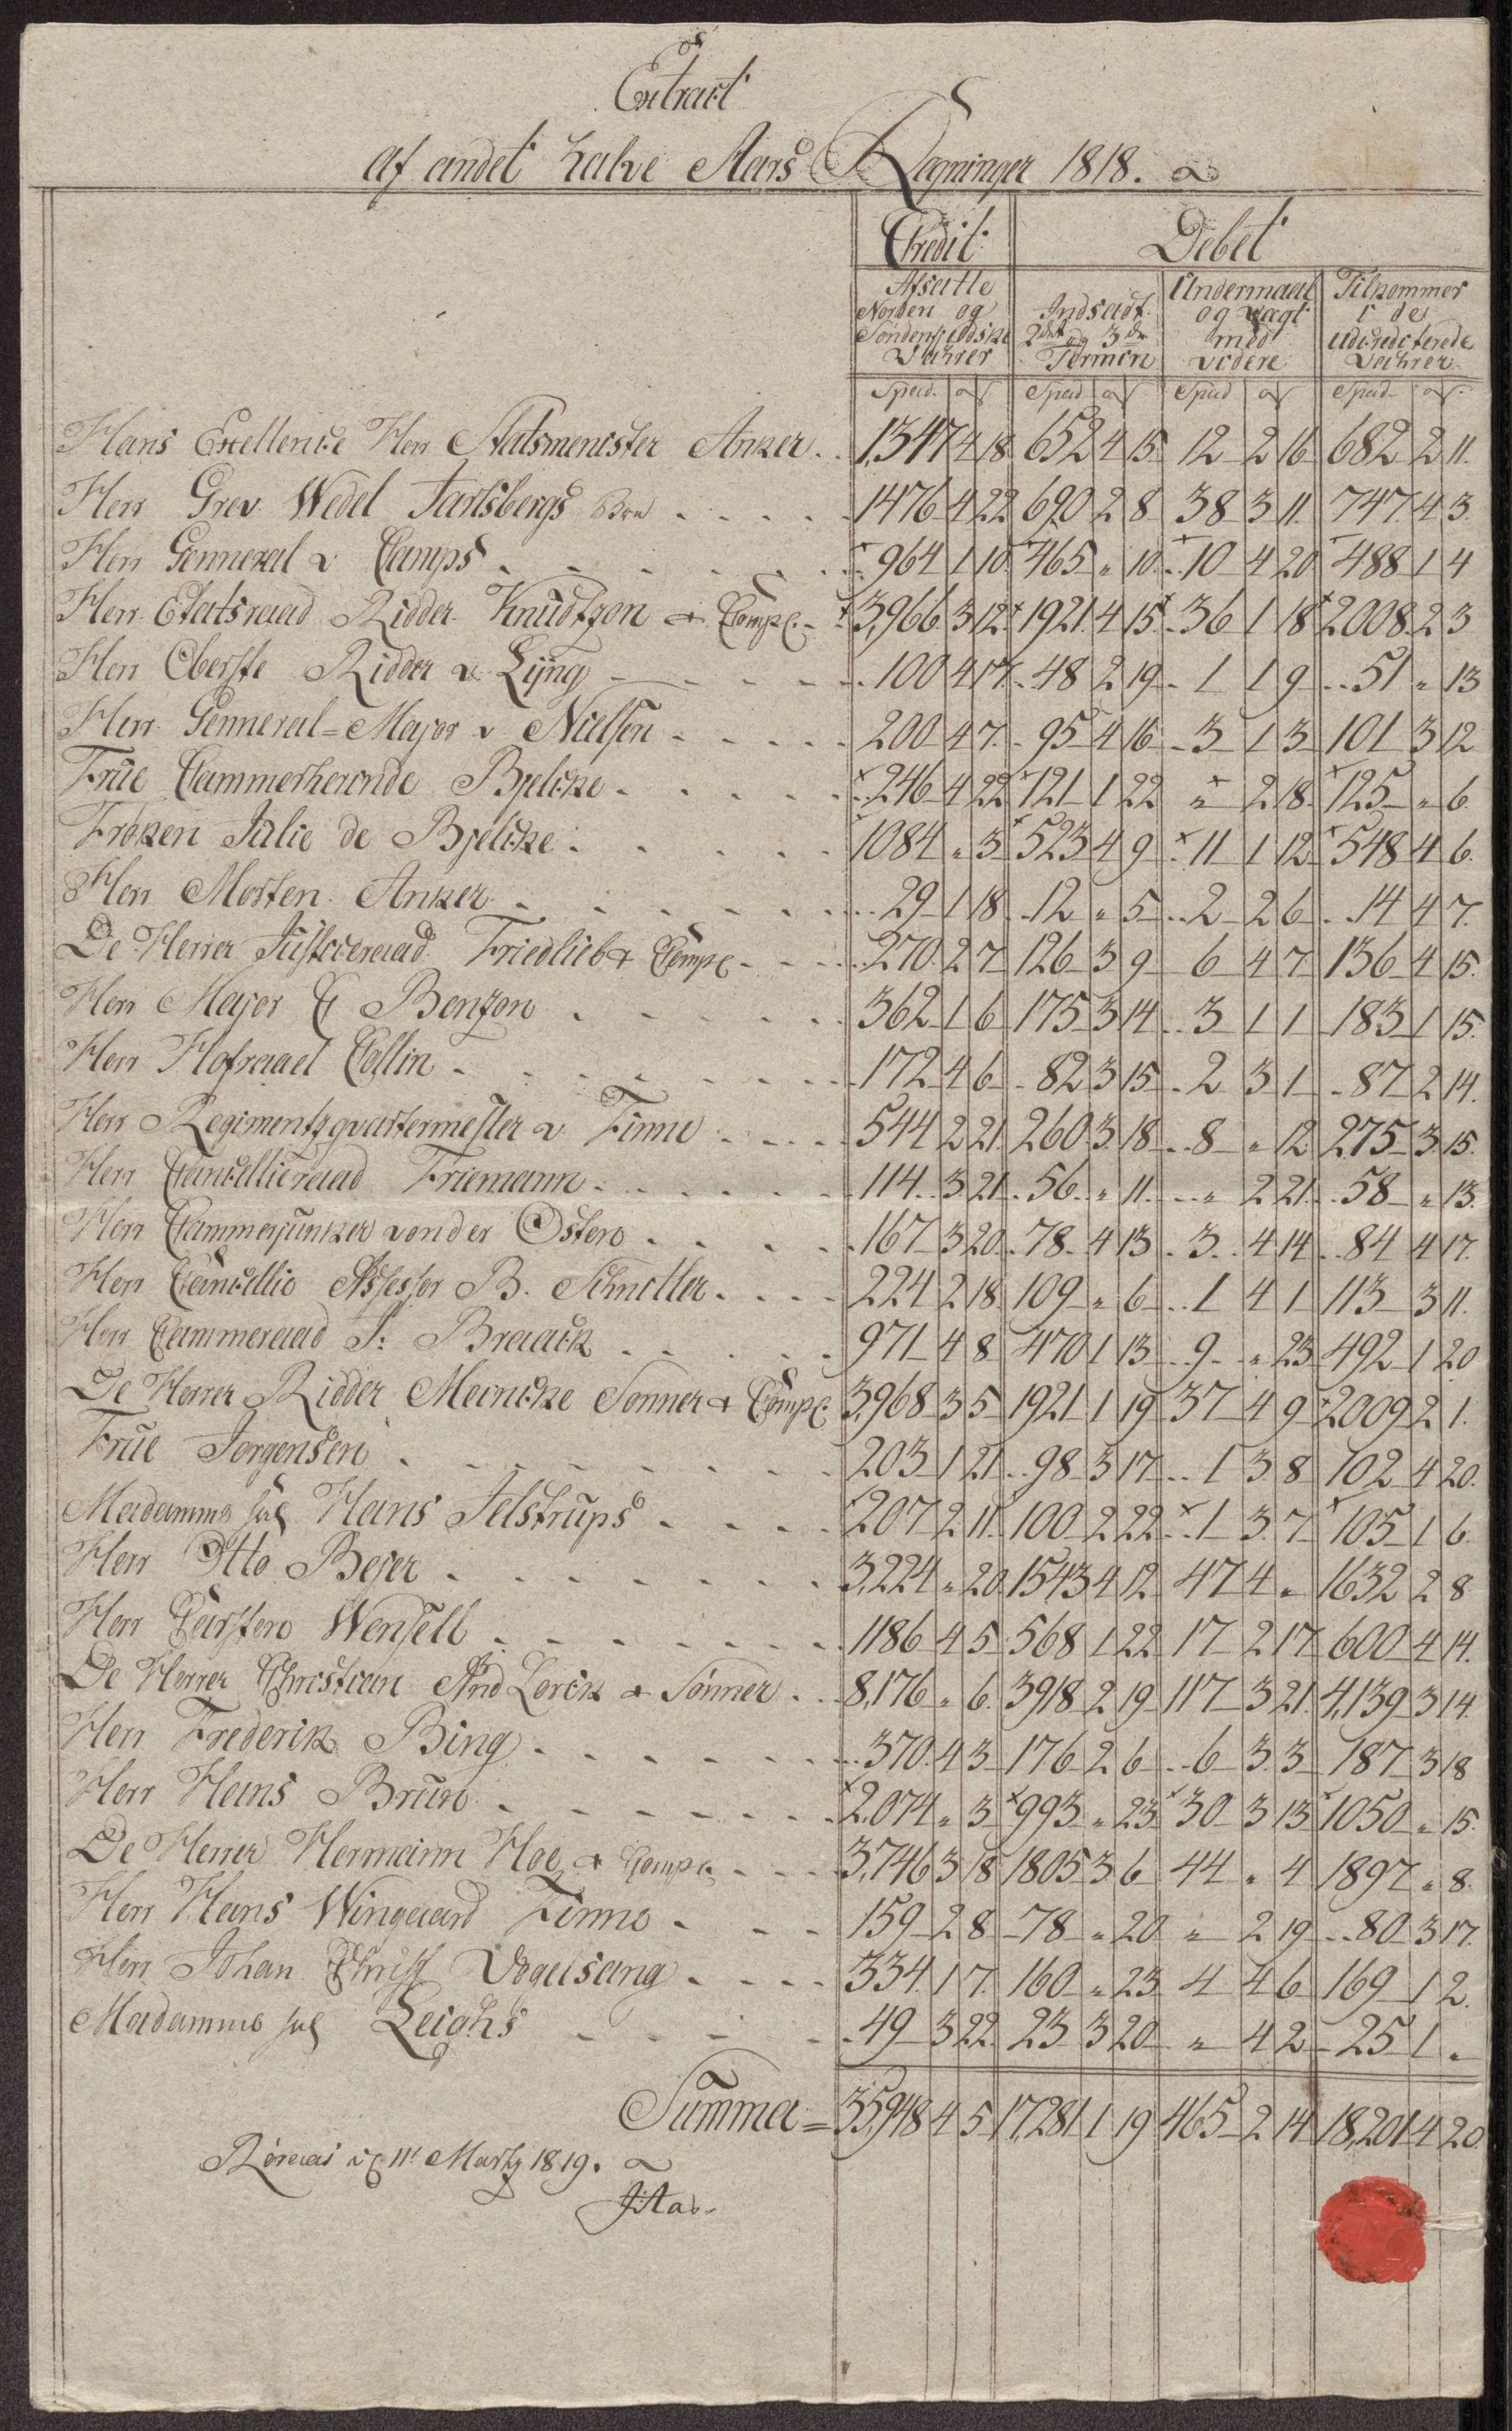 Extract
af andet halve Aars Regninger 1818.
Credit Debet
Afsatte Norden og Søndenfieldske Vahrer
Indsadt 2det og 3die Termin
Undermaal og vægt med videre
Tilkommer i de udcrediterede Vahrer
Specd. Specd Specd Specd
Hans Excellence Herr Statsmenister Anker 1,347 4 18 652 4 15 12 2 16 682 2 11.
Herr Grev Wedel Jarlsbergs Boe 1476 4 22 690 2 8 38 3 11. 747 4 3
Herr Genneral v Camps 964 1 10 465 " 10 10 4 20 488 1 4
Herr Etatsraad Ridder Knudtzon & Comp: 3,966 3 12 1921 4 15 36 1 18 2008 2 3
Herr Oberste Ridder v. Ljng 100 4 17 48 2 19 1 1 9 51 " 13
Herr Genneral=Major v Nielsen 200 4 7 95 4 16 3 1 3 101 3 12
Frue Cammerherinde Bjelcke 246 4 22 121 1 22 " 2 18 125 " 6
Frøken Julie de Bjelcke 1084 " 3 523 4 9 11 1 12 548 4 6
Herr Morten Anker 29 1 18 12 " 5 2 2 6 14 4 7
De Herrer Justiceraad Friedlieb & Comp 270 2 7 126 3 9 6 4 7 136 4 15
Herr Major C Benzon 362 1 6 175 3 14 3 1 1 183 1 15
Herr Hofraad Collin 172 4 6 82 3 15 2 3 1 87 2 14
Herr Regimentzqvartermester v Finne 544 2 21 260 3 18 8 " 12 275 3 15
Herr Cancelliraad Friemann 114 3 21 56 " 11 " 2 21 58 " 13
Herr Cammerjunker von der Osten 167 3 20 78 4 13 3 4 14 84 4 17
Herr Cancellie Assessor B. Schnitler 224 2 18 109 " 6 1 4 1 113 3 11
Herr Cammeraad J: Braack 971 4 8 470 1 13 9 " 23 492 1 20
De Herrer Ridder Meincke Sønner & Comp: 3,968 3 5 1921 1 19 37 4 9 2009 2 1
Frue Jørgensen 203 1 21 98 3 17 1 3 8 102 4 20
Madamme sal Hans Jelstrups 207 2 11 100 2 22 1 3 7 105 1 6
Herr Otto Bejer 3,224 " 20 1543 4 12 47 4 " 1632 2 8
Herr Carsten Wensell 1186 4 5 568 1 22 17 2 17 600 4 14
De Herrer Christian And Lorck & Sønner 8,176 " 6 3918 2 19 117 3 21 4,139 3 14
Herr Frederik Bing 370 4 3 176 2 6 6 3 3 187 3 18
Herr Hans Bruun 2,074 " 3 993 " 23 30 3 13 1050 " 15
De Herrer Hermann Hoe & Comp 3,746 3 18 1805 3 6 44 " 4 1897 " 8
Herr Hans Wingaard Finne 159 2 8 78 " 20 " 2 19 80 3 17
Herr Johan Christ Vogelsang 334 1 7 160 " 23 4 4 6 169 1 2
Madamme sal Leighs 49 3 22 23 3 20 " 4 2 25 1 "
Summa = 35,948 4 5 17,281 1 19 465 2 14 18,201 4 20
Røraas 11t Martz 1819.